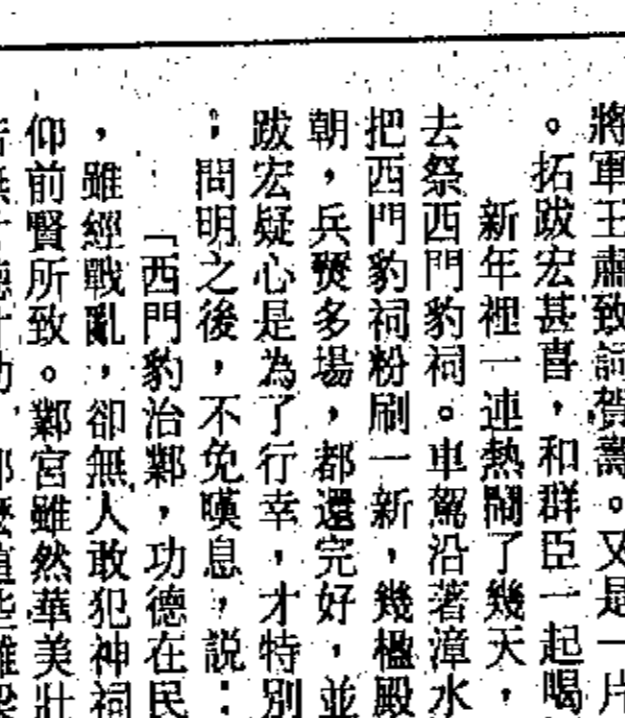 將軍王肅致詞賀壽。又是一片
。拓跋宏甚喜，和群臣一起喝
新年裡一連熱鬧了幾天，
去祭西門豹祠。車駕沿著漳水
把西門豹祠粉刷一新，幾楹殿
朝，兵燹多場，都還完好，並
跋宏疑心是為了行幸，才特別
；問明之後，不免嘆息，說：
「西門豹治鄴，功德在民
，雖經戰亂，卻無人敢犯神祠
仰前賢所致。鄴宮雖然華美壯